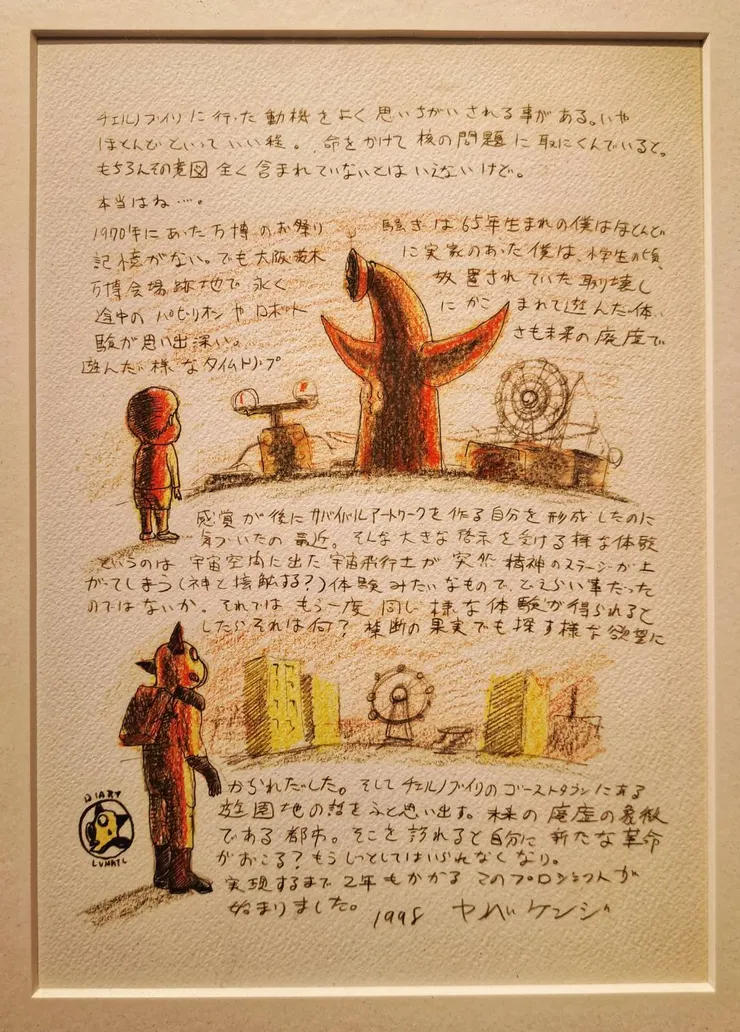 チェルノブイリに行った動機をよく思いちがいされる事がある。いや
ほとんどといっていい程。命をかけて核の問題に取にくんでいると。
もちろんその意図全く含まれていないとはいえないけど。
本当はね…。
1970年にあった万博のお祭り 騒ぎは65年生まれの僕はほとんど
記憶がない。でも大阪茨木 に実家のあった僕は、小学生の頃、
万博会場跡地で永く 放置されていた取壊し
途中のパビリオンやロボット にかこまれて遊んだ体
験が思い出深い。 さも未来の廃虚で
遊んだ様なタイムトリップ
感覚が後にサバイバルアートワークを作る自分を形成したのに
気づいたの最近。そんな大きな啓示を受ける様な体験
というのは宇宙空間に出た宇宙飛行士が突然精神のステージが上
がってしまう(神と接触する?)体験みたいなもので、どえらい事だった
のではないか。それではもう一度同じ様な体験が得られると
したらそれは何?禁断の果実でも探す様な欲望に
かられだした。そしてチェルノブイリのゴーストタウンにある
遊園地の話をふと思い出す。未来の廃虚の象徴
である都市。そこを訪れると自分に新たな革命
がおこる?もうじっとしてはいられなくなり。
実現するまで2年もかかるこのプロジェクトが
始まりました。 1998 ヤノベケンジ
DIARY
LUNATL